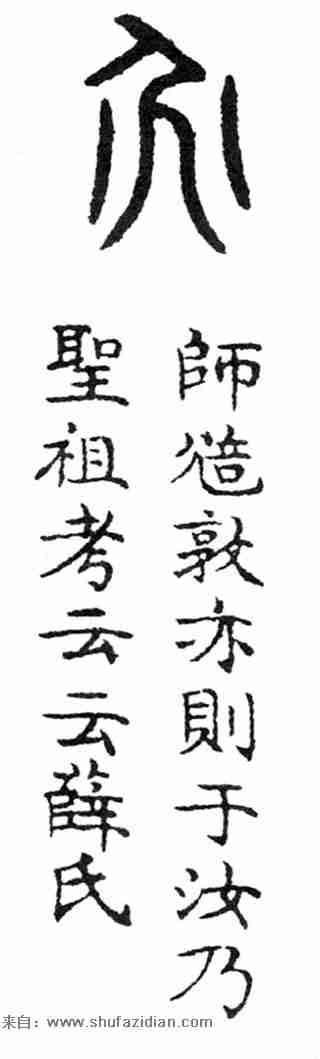 亦
師敦亦則于汝乃
聖祖考云云薛氏
来自：www.shufazidian.com